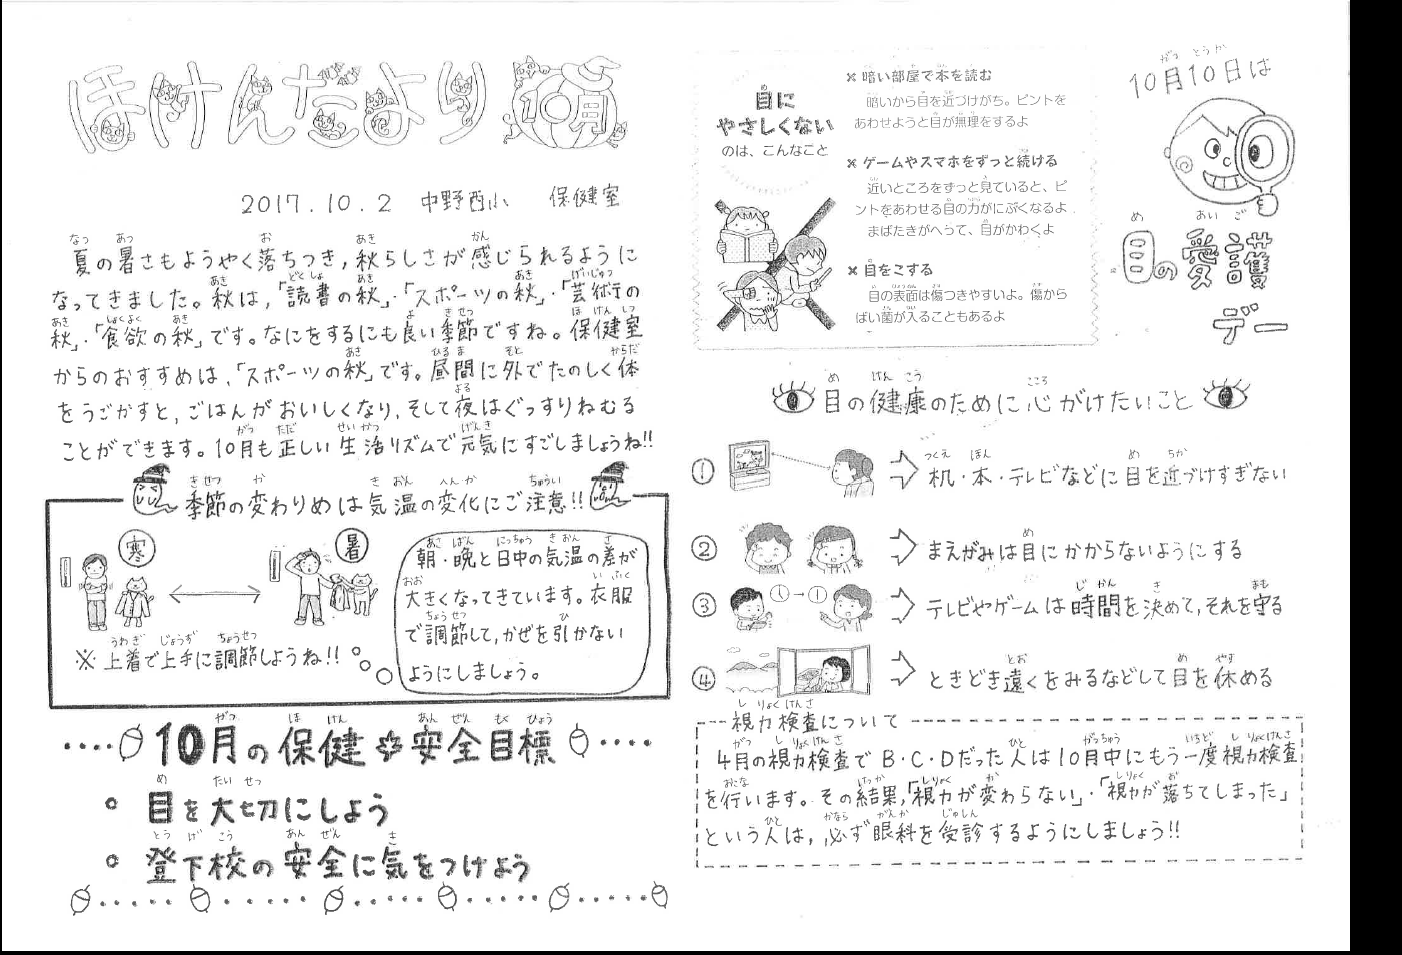 ほけんだより 10月
2017.10.2 中野西小 保健室
夏の暑さもようやく落ちつき,秋らしさが感じられるように
なってきました。秋は,「読書の秋」・「スポーツの秋」・「芸術の
秋」・「食欲の秋」です。なにをするにも良い季節ですね。保健室
からのおすすめは,「スポーツの秋」です。昼間に外でたのしく体
をうごかすと,ごはんがおいしくなり,そして夜はぐっすりねむる
ことができます。10月も正しい生活リズムで元気にすごしましょうね!!
季節の変わりめは気温の変化にご注意!!
寒
暑
※上着で上手に調節しようね!!
朝・晩と日中の気温の差が
大きくなってきています。衣服
で調節して,かぜを引かない
ようにしましょう。
10月の保健☆安全目標
。目を大切にしよう
。登下校の安全に気をつけよう
目に
やさしくない
のは、こんなこと
× 暗い部屋で本を読む
暗いから目を近づけがち。ピントを
あわせようと目が無理をするよ
× ゲームやスマホをずっと続ける
近いところをずっと見ていると、ピ
ントをあわせる目の力がにぶくなるよ
まばたきがへって、目がかわくよ
× 目をこする
目の表面は傷つきやすいよ。傷から
ばい菌が入ることもあるよ
10月10日は
目の愛護
デー
目の健康のために心がけたいこと
① ⇨ 机・本・テレビなどに目を近づけすぎない
② ⇨ まえがみは目にかからないようにする
③ ⇨ テレビやゲームは時間を決めて,それを守る
④ ⇨ ときどき遠くをみるなどして目を休める
視力検査について
4月の視力検査でB・C・Dだった人は10月中にもう一度視力検査
を行います。その結果,「視力が変わらない」・「視力が落ちてしまった」
という人は,必ず眼科を受診するようにしましょう!!